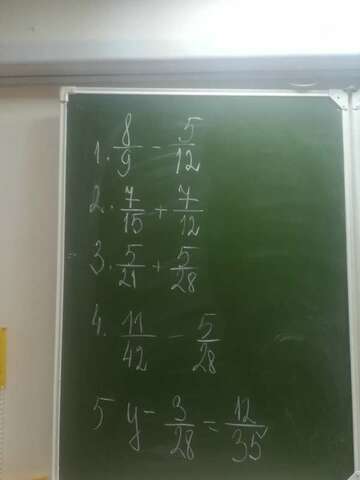 1. 8/9 - 5/12
2. 7/15 + 7/12
3. 5/21 + 5/28
4. 11/42 - 5/28
5 y - 3/28 = 12/35